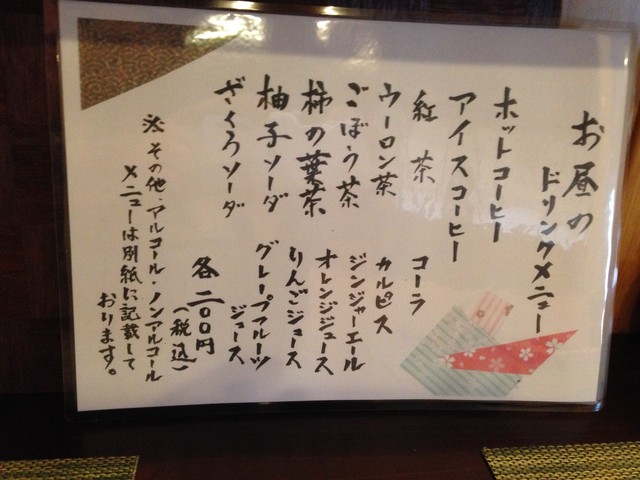 お昼の
ドリンクメニュー
ホットコーヒー
アイスコーヒー
紅茶
コーラ
ウーロン茶
カルピス
ごぼう茶
ジンジャーエール
柿の葉茶
オレンジジュース
柚子ソーダ
りんごジュース
ざくろソーダ
グレープフルーツ
ジュース
各二〇〇円
(税込)
※その他、アルコール・ノンアルコール
メニューは別紙に記載して
おります。